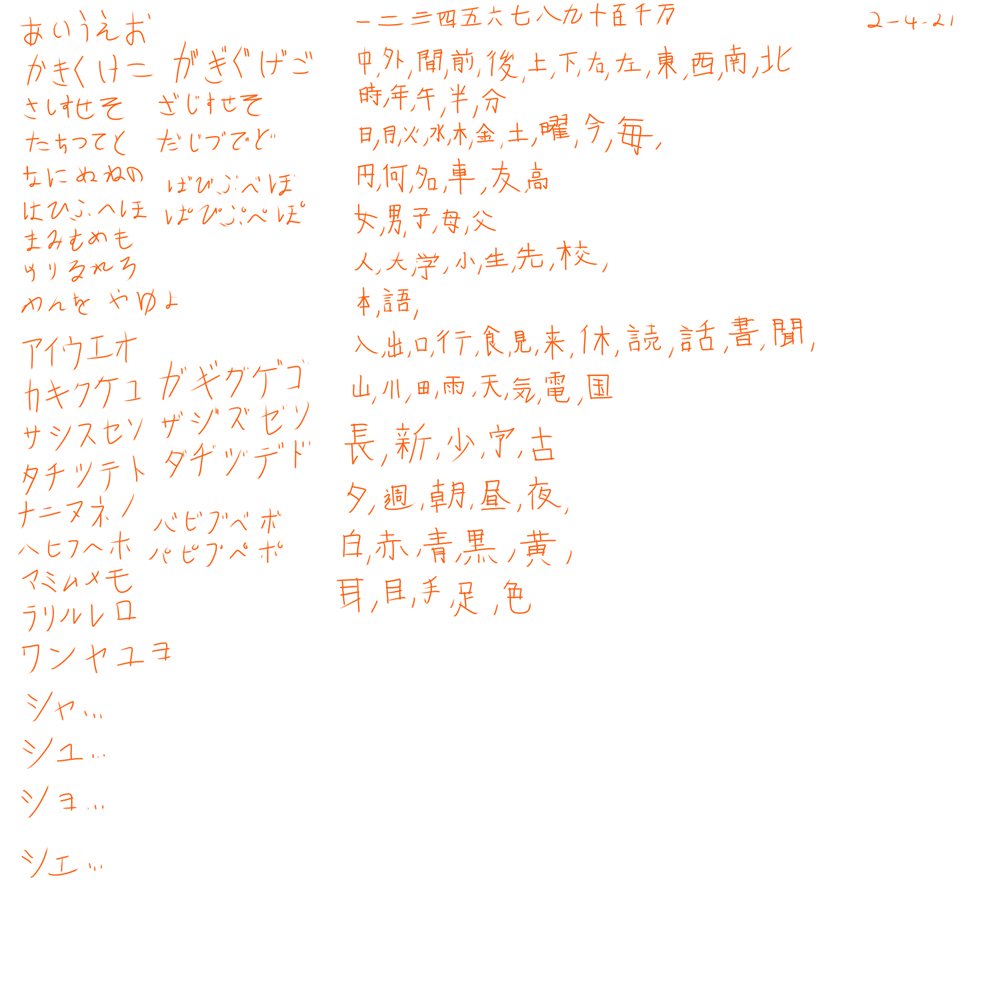 あいうえお
かきくけこ がぎぐげご
さしすせそ ざじすせそ
たちつてと だじづでど
なにぬねの
ばびぶべぼ
はひふへほ
ぱぴぷぺぽ
まみむめも
りるれろ
わんを やゆよ
アイウエオ
カキクケコ ガギグゲゴ
サシスセソ ザジズゼソ
タチツテト ダヂヅデド
ナニヌネノ
バビブベボ
ハヒフヘホ
パピプペポ
マミムメモ
ラリルレロ
ワンヤユヨ
シャ...
シュ...
ショ...
シェ...
一二三四五六七八九十百千万
中,外,間,前,後,上,下,右,左,東,西,南,北
時,年,午,半,分
日,月,火,水,木,金,土,曜,今,毎,
円,何,名,車,友,高
女,男,子,母,父
人,大,学,小,生,先,校,
本,語,
入,出,口,行,食,見,来,休,読,話,書,聞,
山,川,田,雨,天,気,電,国
長,新,少,安,古
夕,週,朝,昼,夜,
白,赤,青,黒,黄,
耳,目,手,足,色
2-4-21